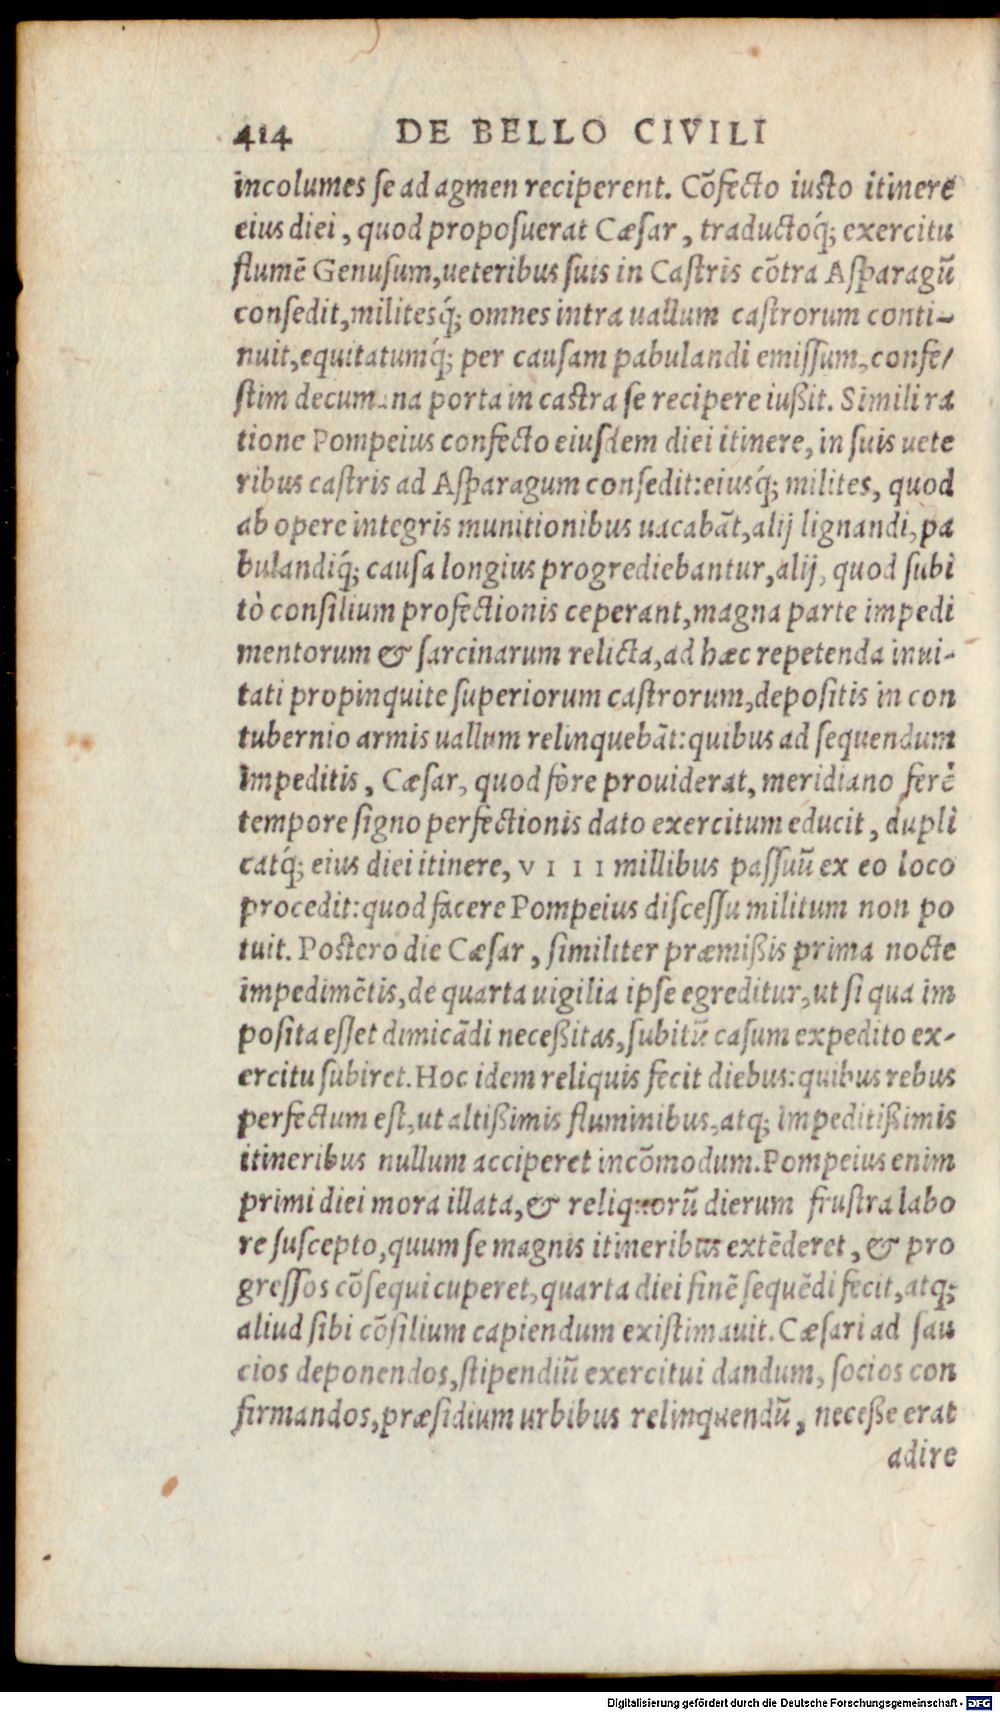 414 DE BELLO CIVILI
incolumes ſe ad agmen reciperent. Cõfecto iuſto itinere
eius diei, quod propoſuerat Cæſar, traductoq́; exercitu
flumẽ Genuſum, ueteribus ſuis in Caſtris cõtra Aſparagũ
conſedit, militesq́; omnes intra uallum caſtrorum conti-
nuit, equitatumq́; per cauſam pabulandi emiſſum, confe/
ſtim decumana porta in caſtra ſe recipere iußit. Simili ra
tione Pompeius confecto eiuſdem diei itinere, in ſuis uete
ribus caſtris ad Aſparagum conſedit: eiusq́; milites, quod
ab opere integris munitionibus uacabãt, alij lignandi, pa
bulandiq́; cauſa longius progrediebantur, alij, quod ſubi
tò conſilium profectionis ceperant, magna parte impedi
mentorum & ſarcinarum relicta, ad hæc repetenda inui-
tati propinquite ſuperiorum caſtrorum, depoſitis in con
tubernio armis uallum relinquebãt: quibus ad ſequendum
impeditis, Cæſar, quod fore prouiderat, meridiano ferè
tempore ſigno perfectionis dato exercitum educit, dupli
catq́; eius diei itinere, VIII millibus paſſuũ ex eo loco
procedit: quod facere Pompeius diſceſſu militum non po
tuit. Poſtero die Cæſar, ſimiliter præmißis prima nocte
impedimẽtis, de quarta uigilia ipſe egreditur, ut ſi qua im
poſita eſſet dimicãdi neceßitas, ſubitũ caſum expedito ex-
ercitu ſubiret. Hoc idem reliquis fecit diebus: quibus rebus
perfectum eſt, ut altißimis fluminibus, atq; impeditißimis
itineribus nullum acciperet incõmodum. Pompeius enim
primi diei mora illata, & reliquorũ dierum fruſtra labo
re ſuſcepto, quum ſe magnis itineribus extẽderet, & pro
greſſos cõſequi cuperet, quarta diei finẽ ſequẽdi fecit, atq;
aliud ſibi cõſilium capiendum exiſtimauit. Cæſari ad ſau
cios deponendos, ſtipendiũ exercitui dandum, ſocios con
firmandos, præſidium urbibus relinquendũ, neceße erat
adire
Digitalisierung gefördert durch die Deutsche Forschungsgemeinschaft - DFG